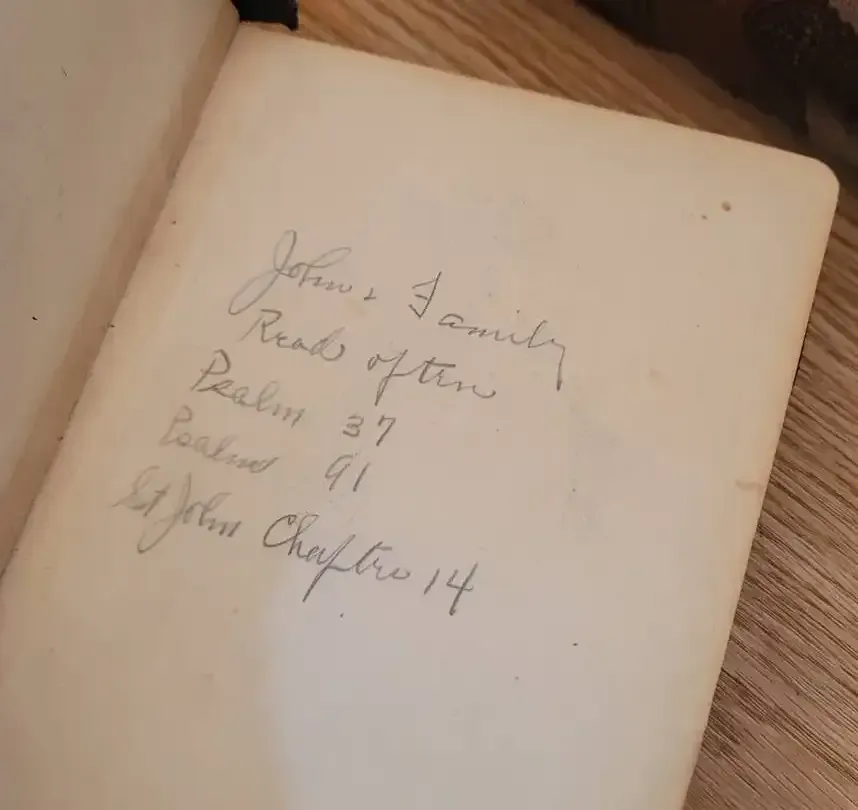 John & Family
Read often
Psalm 37
Psalm 91
St John Chapter 14